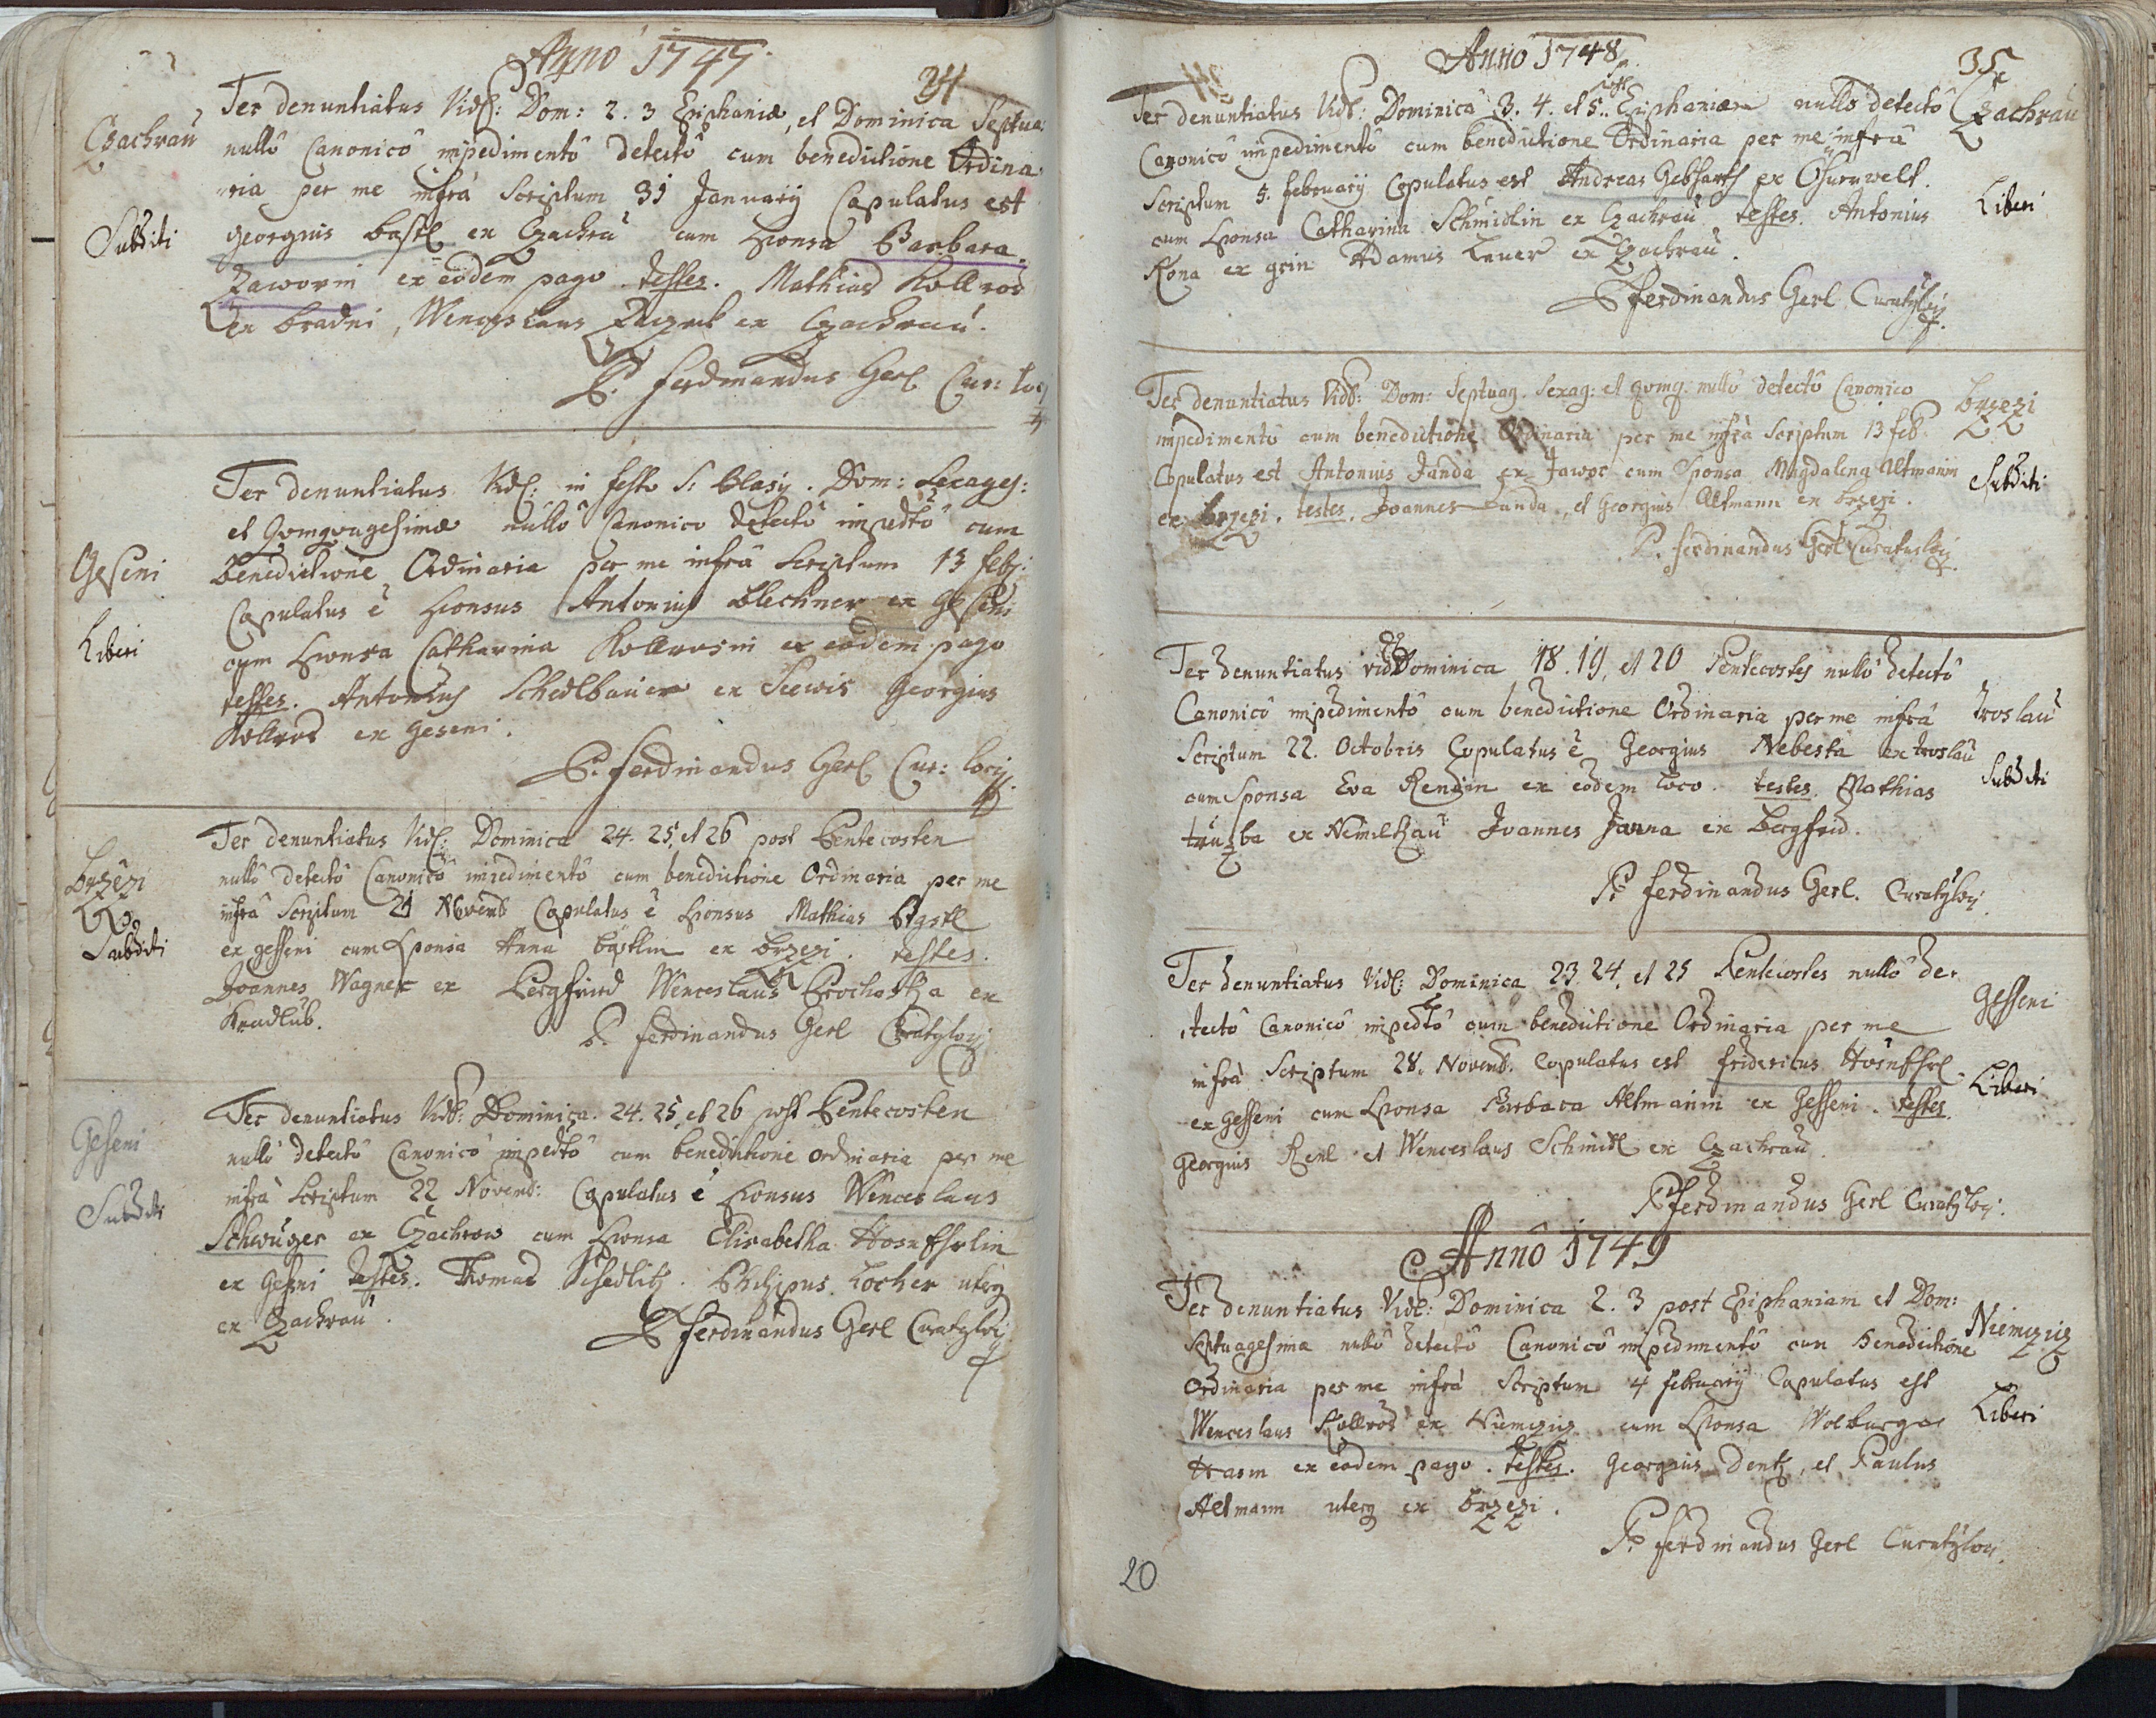 Anno 1747.
34
Czachrau
Subditi
Ter denuntiatus Vidl: Dom: 2. 3 Epiphaniæ, et Dominica Septua:
nullô Canonicô impedimentô detectô cum benedictione Ordina
ria per me infrà Scriptum 31 January Copulatus est
Georgius Bastl ex Czachrau cum Sponsa Barbara
Zaworin ex eodem pago. testes. Mathias Kollros
ex Bradni, Wenceslaus ex Czachrau.
P. Ferdinandus Gerl Cur: locy
Geseni
Liberi
Ter denuntiatus Vidl: in festo S: Blasy. Dom: Sexages:
et Qvinqvagesimæ nullô Canonico detectô impedtô cum
Benedictione Ordinaria per me infrà Scriptum 13 feb:
Copulatus ê Sponsus Antonius Blechner ex Geseni
cum Sponsa Catharina Kollrosin ex eodem pago
testes. Antonius Schedlbauer ex Seewis Georgius
Kollros ex Geseni.
P. Ferdinandus Gerl Cur: locy
Brzezi
Subditi
Ter denuntiatus Vidl: Dominica 24. 25, et 26 post Pentecosten
nullô detectô Canonicô impedimentô cum benedictione Ordinaria per me
infrà Scriptum 21 Novemb Copulatus ê Sponsus Mathias
ex gesseni cum Sponsa Anna Bastlin ex Brzezi. testes.
Joannes Wagner ex Bergfried Wenceslaus Prochaska ex
Kradlub.
P. Ferdinandus Gerl Curaty locy
Geseni
Subditi
Ter denuntiatus Vidl: Dominica. 24. 25, et 26 post Pentecosten
nullô detectô Canonicô impedtô cum benedictione ordinaria per me
infrà Scriptum 22 Novemb: Copulatus ê Sponsus Wenceslaus
Schwuger ex Czachrow cum Sponsa Elisabetha
ex Geseni testes. Thomas Schedlitz. Philipus Locher uterq
ex Czachrau.
P. Ferdinandus Gerl Curaty locy
Anno 1748
35
Czachrau
Liberi
Ter denuntiatus Vidl: Dominica 3. 4. et 5. post Epiphaniam nullô detectô
Canonicô impedimentô cum benedictione Ordinaria per me infrà
Scriptum 5. February. Copulatus est Andreas Gebharth ex
cum Sponsa Catharina Schmidlin ex Czachrau testes. Antonius
Kona ex grin Adamus Lauer ex Czachrau.
P Ferdinandus Gerl Curaty locy.
Brzezi
Subditi
Ter denuntiatus Vidl: Dom: Septuag. Sexag: et qvinq: nullô detectô Canonico
impedimentô cum benedictione Ordinaria per me infrà Scriptum 13 feb.
Copulatus est Antonius Janda ex Jawor cum Sponsa Magdalena Altmanin
ex Brzezi. testes. Joannes Janda, et Georgius Altmann ex Brzezi.
P. Ferdinandus Gerl Curatus locy.
Troslau
Subditi
Ter denuntiatus vidl Dominica 18. 19, et 20 Pentecostes nullô detectô
Canonicô impedimentô cum benedictione Ordinaria per me infrà
Scriptum 22. Octobris Copulatus ê Georgius Nebesta ex troslau
cum Sponsa Eva Rendin ex eodem loco. testes. Mathias
ex Joannes Janna ex Bergfrid.
P. Ferdinandus Gerl. Curaty locy
Gesseni
Liberi
Ter denuntiatus Vidl: Dominica 23. 24. et 25 Pentecostes nullô de
tectô Canonicô impedtô cum benedictione Ordinaria per me
infrà Scriptum 28. Novemb. Copulatus est Fridericus
ex gesseni cum Sponsa Barbara Altmanin ex Gesseni. testes
Georgius Renl et Wenceslaus Schmidl ex Czachrau.
P Ferdinandus Gerl Curaty locy.
Anno 1749
Niemczicz
Liberi
Ter denuntiatus Vidl: Dominica 2. 3 post Epiphaniam et Dom:
Septuagesima nullô detectô Canonicô impedimentô cum Benedictione
Ordinaria per me infrà Scriptum 4 february Copulatus est
Wenceslaus Kollros ex Niemczicz cum Sponsa Wolburga
ex eodem pago. testes. Georgius Dentz, et Paulus
Altmann uterq ex Brzezi.
P. Ferdinandus Gerl Curaty locy.
20